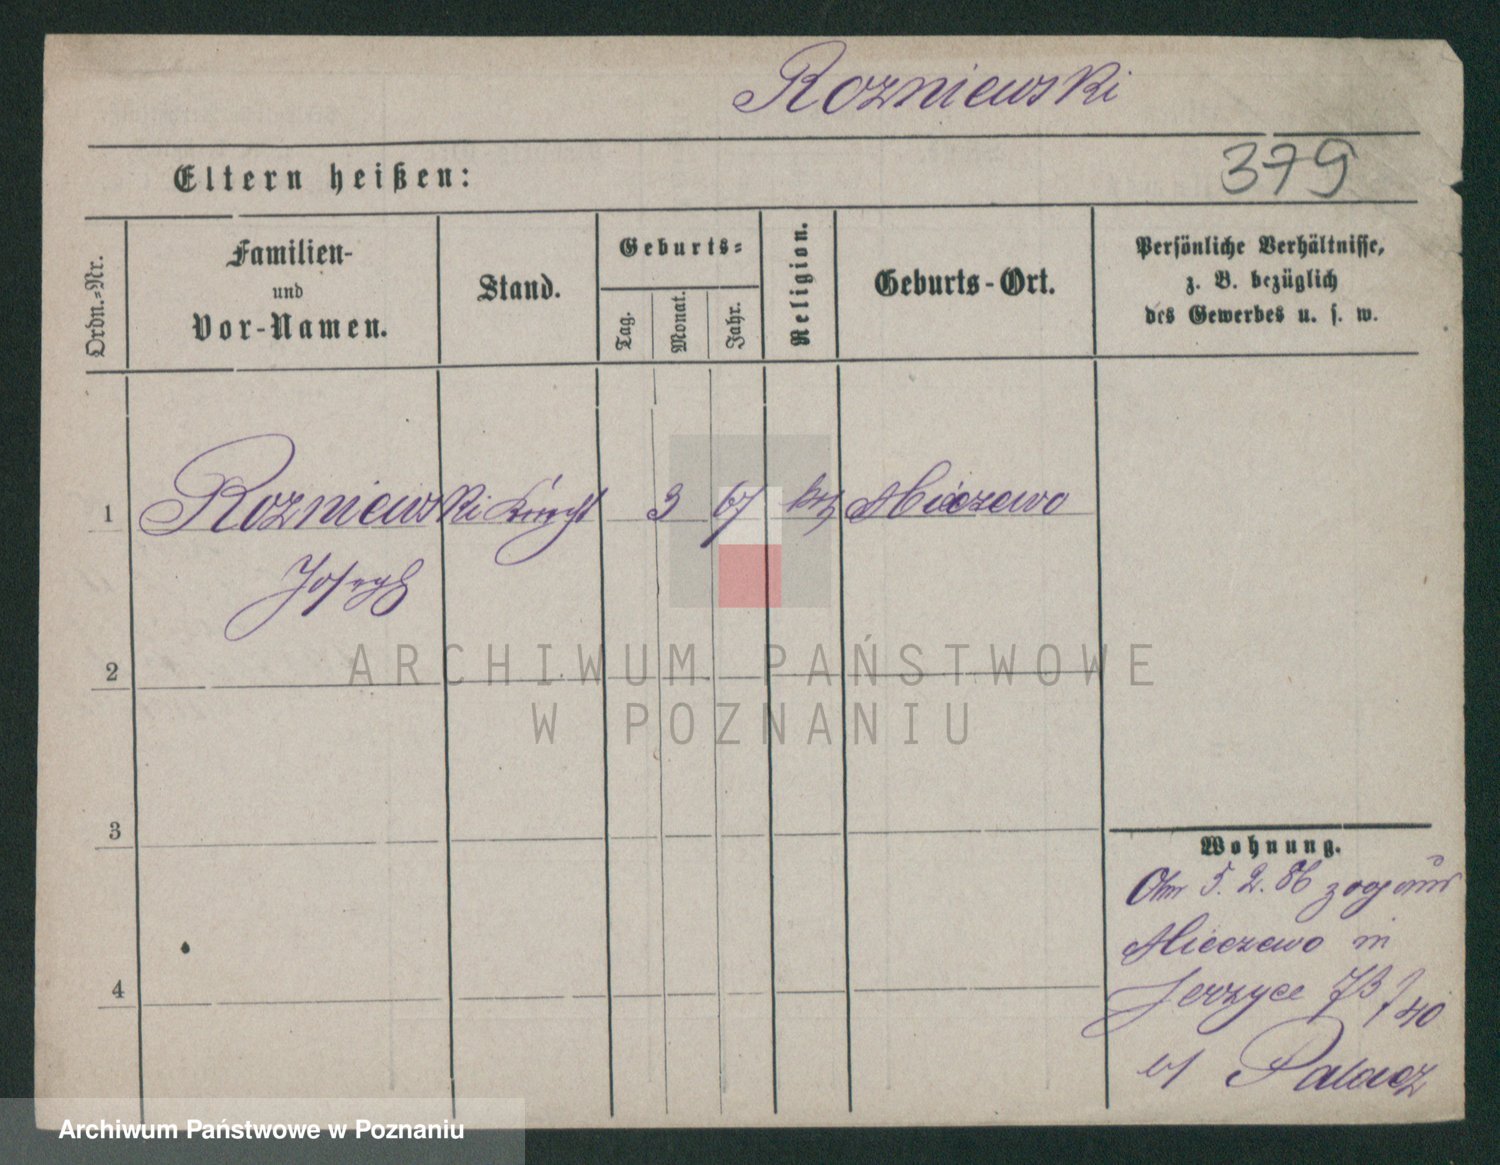 Rozniewski
379
Eltern heißen:
Ordn.-Nr.
Familien-
und
Vor-Namen.
Stand.
Geburts-
Tag.
Monat.
Jahr.
Religion.
Geburts-Ort.
Persönliche Verhältnisse,
z. B. bezüglich
des Gewerbes u. s. w.
1 Rozniewski Knecht 3 67 kth Mieczewo
Joseph
2
3
4
Wohnung.
Am 5. 2. 86 zog aus
Mieczewo in
Jerzyce 73/40
bei Palacz
ARCHIWUM PAŃSTWOWE
W POZNANIU
Archiwum Państwowe w Poznaniu